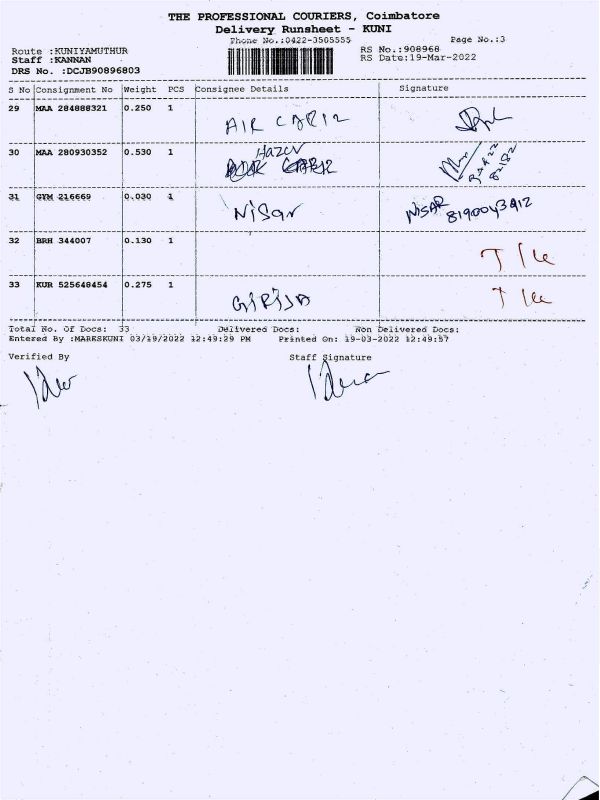 THE PROFESSIONAL COURIERS, Coimbatore
Delivery Runsheet - KUNI
Phone No.:0422-3505555
Page No.:3
Route :KUNIYAMUTHUR
RS No.:908968
Staff :KANNAN
RS Date:19-Mar-2022
DRS No. :DCJB90896803
S No Consignment No Weight PCS Consignee Details Signature
29 MAA 284888321 0.250 1
AIR CARIZ
30 MAA 280930352 0.530 1
Hazer
31 GYM 216669 0.030 1
Nisar NISAR
8190043912
32 BRH 344007 0.130 1
33 KUR 525648454 0.275 1
GIRIJA
Total No. Of Docs: 33 Delivered Docs: Non Delivered Docs:
Entered By :MARESKUNI 03/19/2022 12:49:29 PM Printed On: 19-03-2022 12:49:57
Verified By Staff Signature